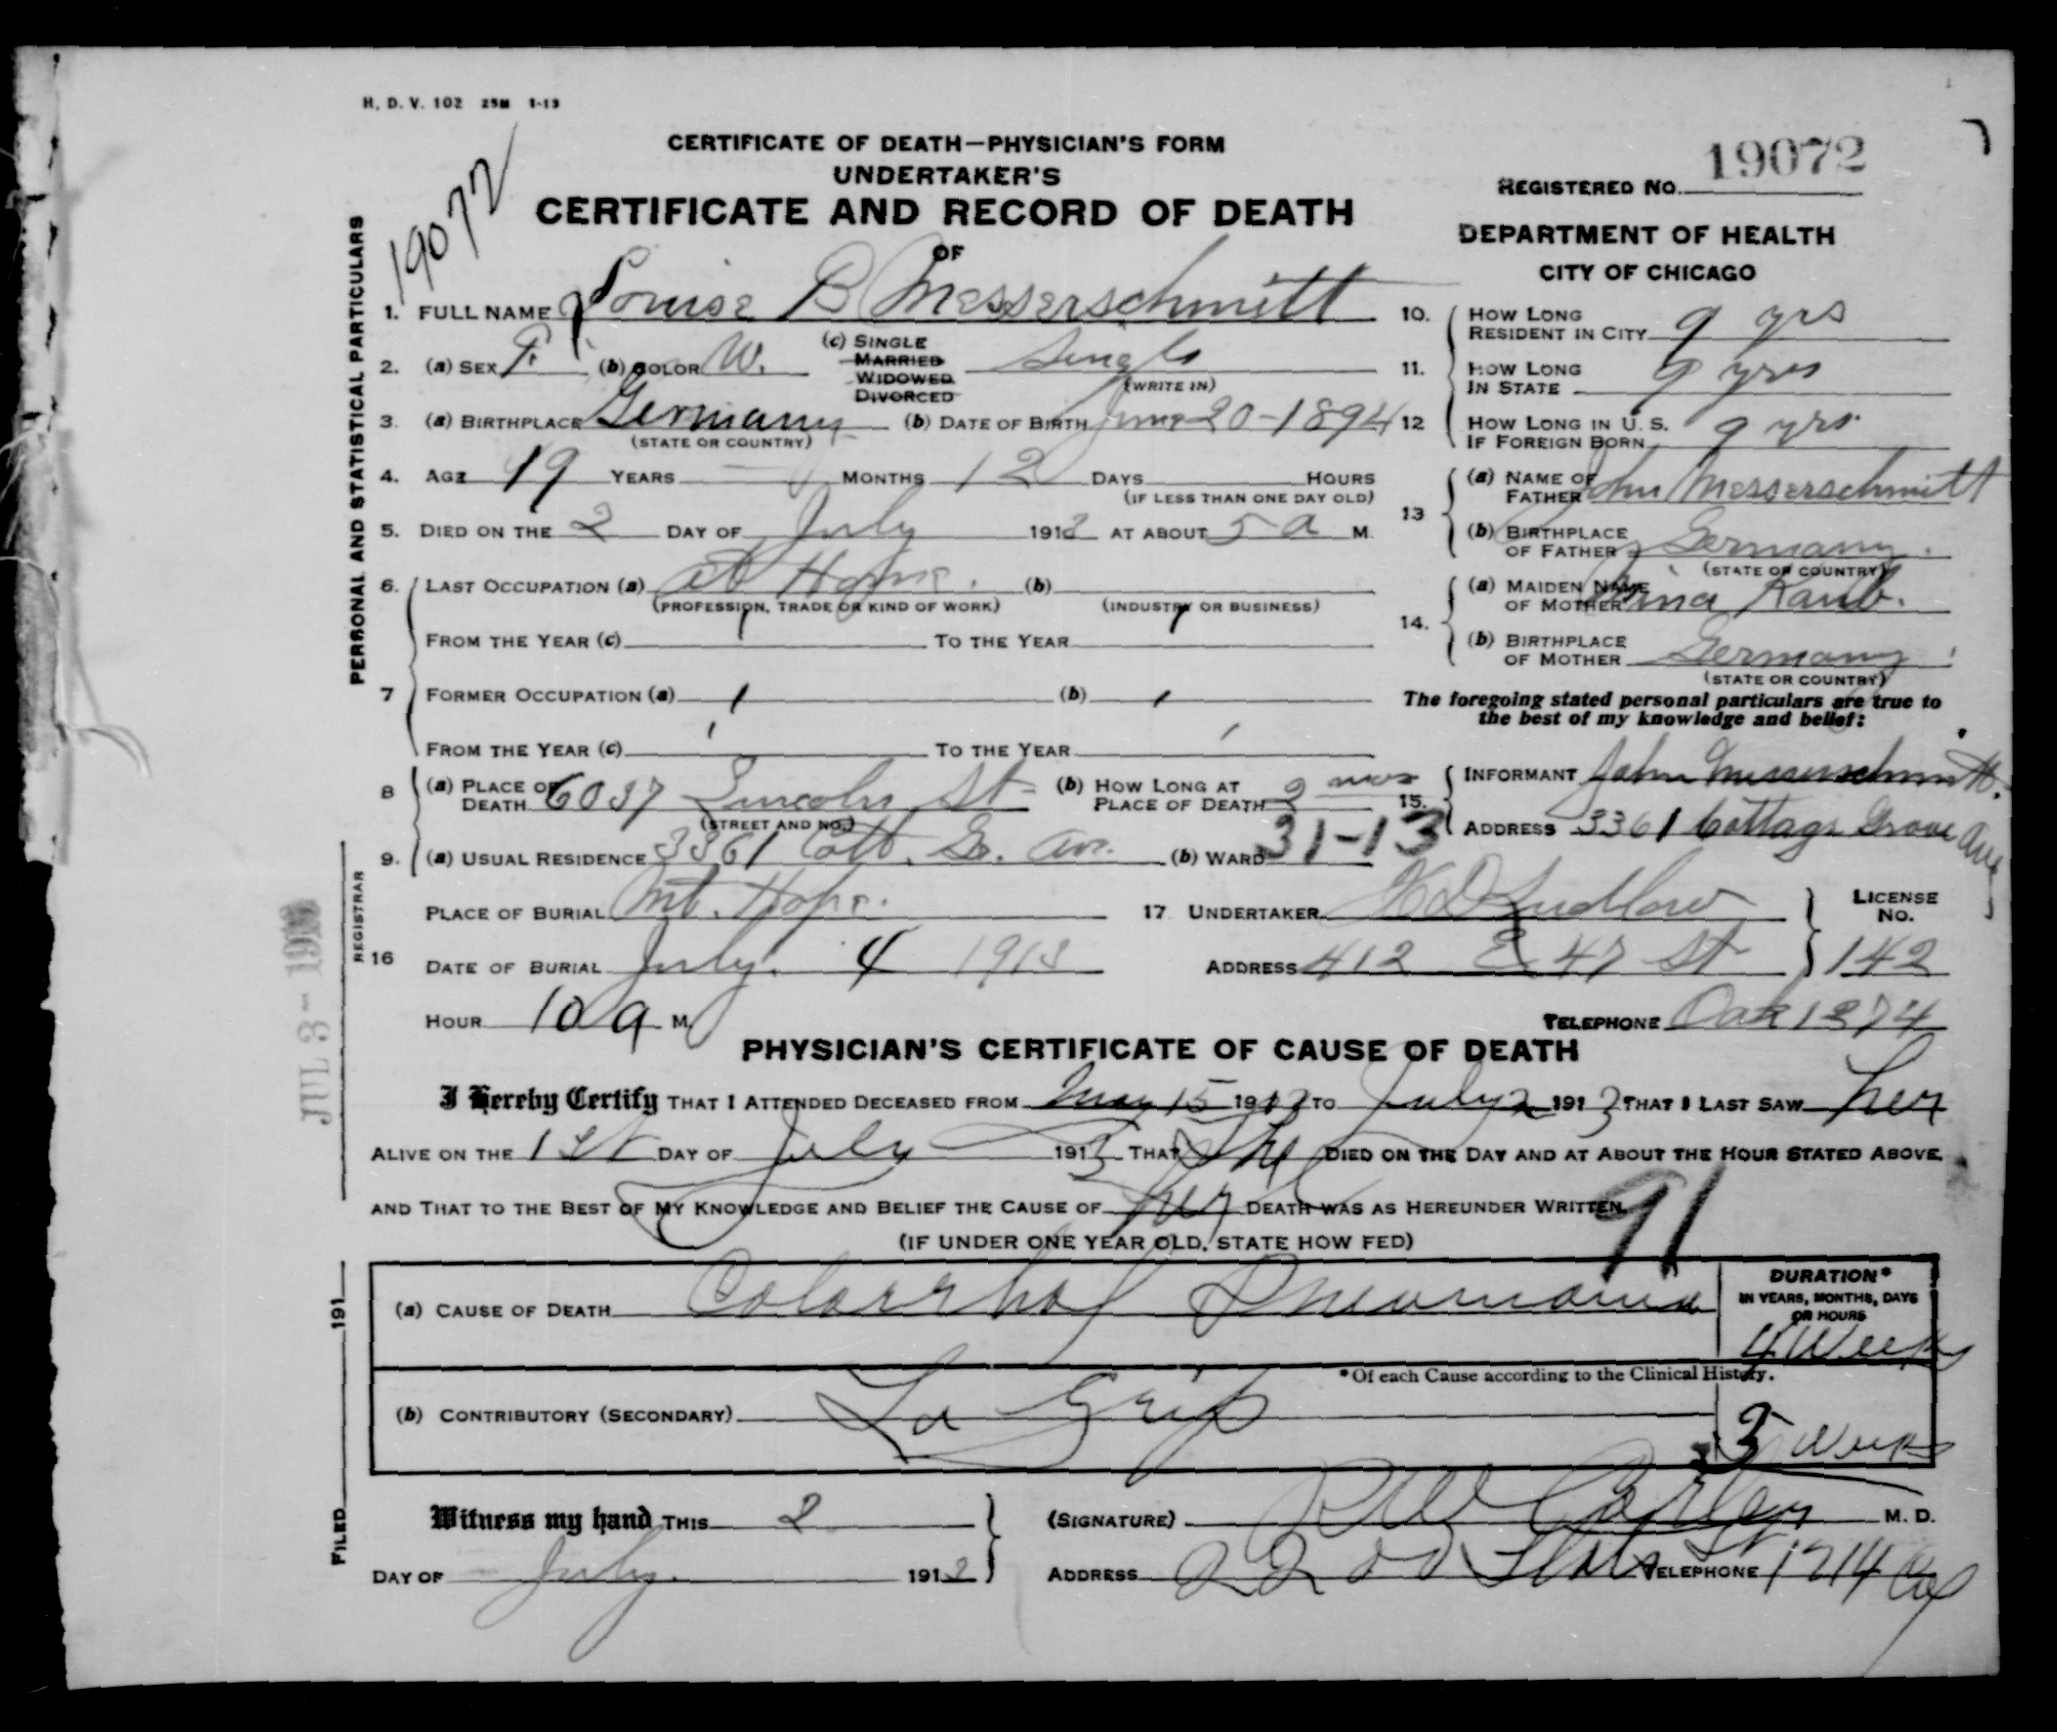 H. D. V. 102 25M 1-13
CERTIFICATE OF DEATH—PHYSICIAN'S FORM
19072
UNDERTAKER'S
REGISTERED NO. 19072
CERTIFICATE AND RECORD OF DEATH
OF
DEPARTMENT OF HEALTH
CITY OF CHICAGO
PERSONAL AND STATISTICAL PARTICULARS
1. FULL NAME Louise B Messerschmitt
2. (a) SEX F. (b) COLOR W. (c) SINGLE MARRIED WIDOWED DIVORCED Single (WRITE IN)
3. (a) BIRTHPLACE Germany (STATE OR COUNTRY) (b) DATE OF BIRTH June 20-1894
4. AGE 19 YEARS — MONTHS 12 DAYS HOURS
(IF LESS THAN ONE DAY OLD)
5. DIED ON THE 2 DAY OF July 1913 AT ABOUT 5 a M.
6. LAST OCCUPATION (a) at Home. (b)
(PROFESSION, TRADE OR KIND OF WORK) (INDUSTRY OR BUSINESS)
FROM THE YEAR (c) TO THE YEAR
7 FORMER OCCUPATION (a) (b)
FROM THE YEAR (c) TO THE YEAR
8 (a) PLACE OF DEATH 6037 Lincoln St (STREET AND NO.) (b) HOW LONG AT PLACE OF DEATH 2 mos
9. (a) USUAL RESIDENCE 3361 Cott. Gr. Ave. (b) WARD 31-13
10. HOW LONG RESIDENT IN CITY 9 yrs
11. HOW LONG IN STATE 9 yrs
12 HOW LONG IN U.S. IF FOREIGN BORN 9 yrs.
13 (a) NAME OF FATHER John Messerschmitt
(b) BIRTHPLACE OF FATHER Germany.
(STATE OR COUNTRY)
14. (a) MAIDEN NAME OF MOTHER Kaub.
(b) BIRTHPLACE OF MOTHER Germany
(STATE OR COUNTRY)
The foregoing stated personal particulars are true to
the best of my knowledge and belief:
15. INFORMANT John Messerschmitt.
ADDRESS 3361 Cottage Grove Ave
REGISTRAR
JUL 3 - 1913
16 PLACE OF BURIAL Mt. Hope.
DATE OF BURIAL July 4 1913
HOUR 10 a M.
17 UNDERTAKER Ludlow
ADDRESS 412 E 47 St
LICENSE NO. 142
TELEPHONE Oak 1374
PHYSICIAN'S CERTIFICATE OF CAUSE OF DEATH
I Hereby Certify THAT I ATTENDED DECEASED FROM May 15 1913 TO July 2 1913 THAT I LAST SAW her
ALIVE ON THE 1st DAY OF July 1913 THAT She DIED ON THE DAY AND AT ABOUT THE HOUR STATED ABOVE,
AND THAT TO THE BEST OF MY KNOWLEDGE AND BELIEF THE CAUSE OF her DEATH WAS AS HEREUNDER WRITTEN.
91
(IF UNDER ONE YEAR OLD, STATE HOW FED)
(a) CAUSE OF DEATH Catarrhal Pneumonia
DURATION*
IN YEARS, MONTHS, DAYS
OR HOURS
4 Weeks
*Of each Cause according to the Clinical History.
(b) CONTRIBUTORY (SECONDARY) La Grip
3 weeks
FILED 191
Witness my hand THIS 2
DAY OF July. 1913
(SIGNATURE) M. D.
ADDRESS 2200 State St TELEPHONE 1714 Cal